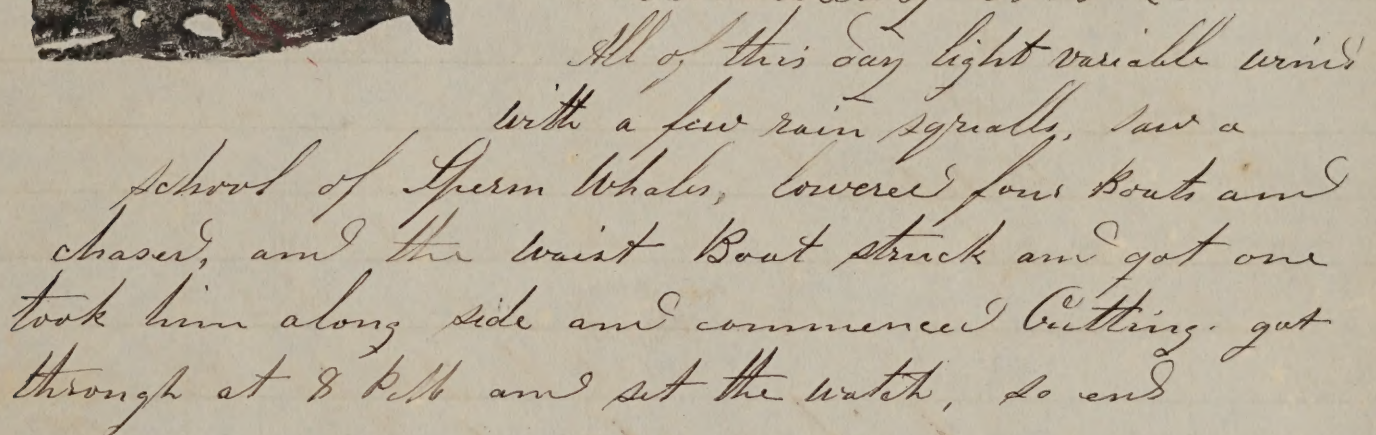 All of this day light variable winds
with a few rain squalls, saw a
school of Sperm Whales, lowered four Boats and
chased, and the waist Boat struck and got one
took him along side and commenced Cutting. got
through at 8 P.M and set the watch, so end